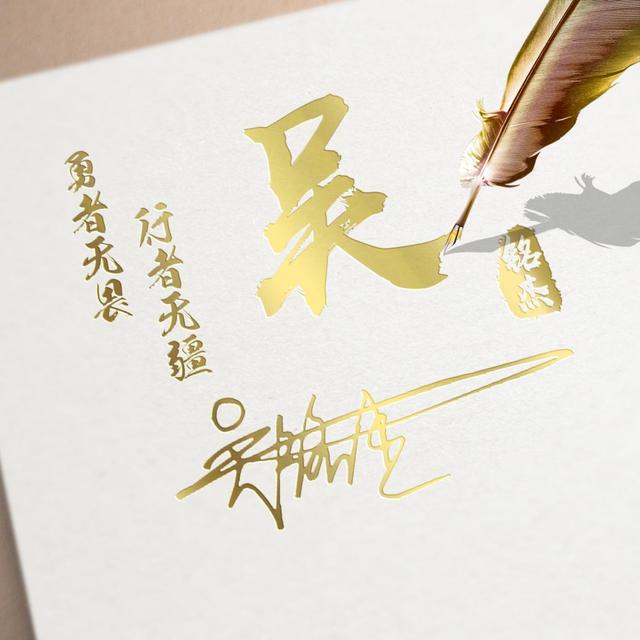 勇者无畏
行者无疆
吴
铭杰